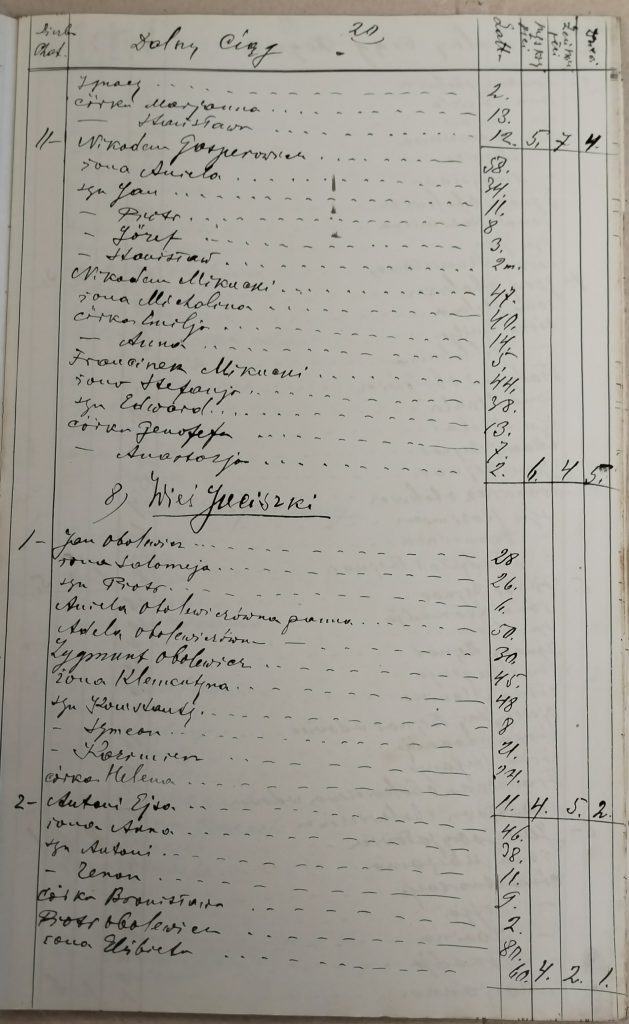 Liczba Chat. Dalszy Ciąg 20. Lata Męzkiej płci Żeńskiej płci Dzieci
Ignacy 2.
córka Marjanna 13.
— Stanisława 12. 5. 7 4.
11- Nikodem Gasperowicz 58.
żona Aniela 34.
syn Jan 11.
— Piotr 8
— Józef 3.
— Stanisław 2 m.
Nikodem Mikucki 47.
żona Michalina 40.
córka Emilja 14.
— Anna 5.
Franciszek Mikucki 44.
żona Stefanja 38.
syn Edward 13.
córka Genofefa 7.
— Anastazja 2. 6. 4 5.
8) Wieś Juciszki
1- Jan Obolewicz 28
żona Salomeja 26.
syn Piotr 6.
Aniela Obolewiczówna panna 50.
Adela Obolewiczówna — 30.
Zygmunt Obolewicz 45.
żona Klementyna 48
syn Konstanty 8
- Symeon 21.
- Kazimierz
córka Helena 11. 4. 5. 2.
2- Antoni Ejsa 46.
żona Anna 38.
syn Antoni 11.
- Zenon 9.
córka Bronisława 2.
Piotr Obolewicz 80.
żona Elżbieta 60. 4. 2. 1.